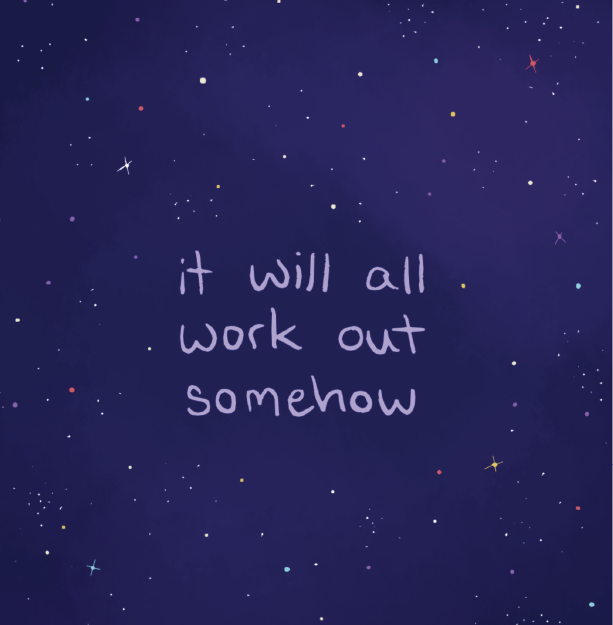 it will all
work out
somehow